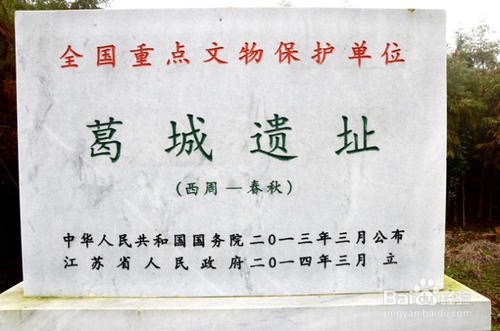 全国重点文物保护单位
葛城遗址
（西周－春秋）
中华人民共和国国务院二〇一三年三月公布
江苏省人民政府二〇一四年三月 立
Baidu 经验
jingyan.baidu.com